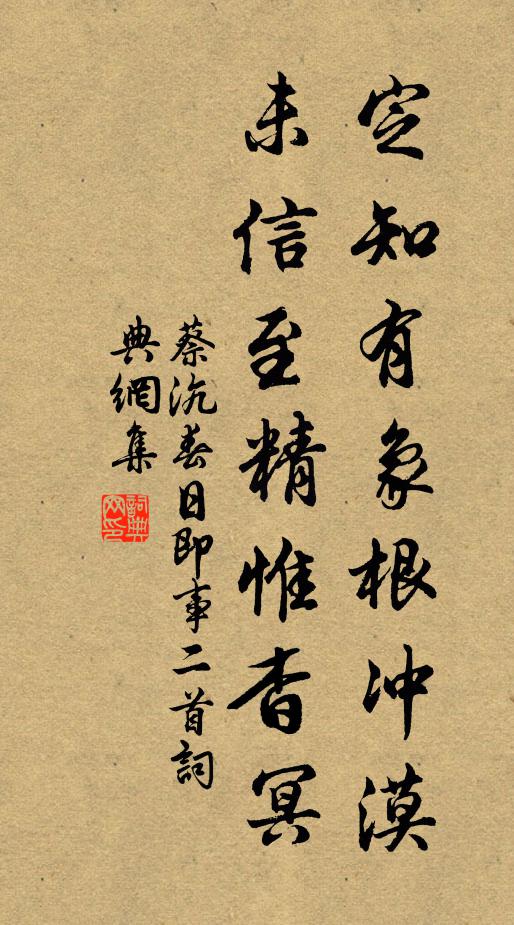 定知有象根冲漠
未信至精惟杳冥
蔡沉春日即事二首詞
典網集
詞典
网印